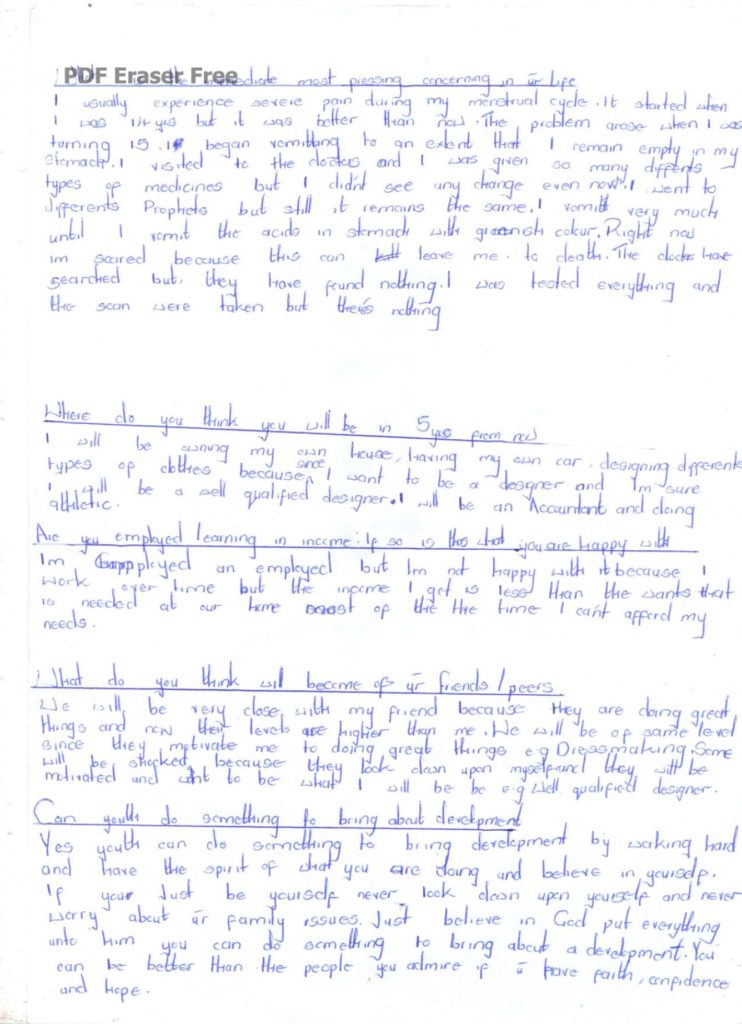 PDF Eraser Free
the immediate most pressing concerning in ur Life
I usually experience severe pain during my menstrual cycle. It started when
I was 14 yrs but it was better than now. The problem arose when I was
turning 15. I began vomitting to an extent that I remain empty in my
stomach. I visited to the doctors and I was given so many diffents
types of medicines but I didn't see any change even now. I went to
differents Prophets but still it remains the same. I vomit very much
until I vomit the acids in stomach with greenish colour. Right now
im scared because this can leave me to death. The doctors have
searched but they have found nothing. I was tested everything and
the scan were taken but there's nothing
Where do you think you will be in 5yrs from now
I will be owning my own house, having my own car, designing differents
types of clothes because since I want to be a designer and I'm sure
I will be a well qualified designer. I will be an Accountant and doing
athletic.
Are you employed learning in income. If so is this what you are happy with
Im employed an employed but Im not happy with it because I
work over time but the income I get is less than the wants that
is needed at our home most of the the time I can't afford my
needs.
What do you think will become of ur friends/peers
We will be very close with my friend because they are doing great
things and now their levels are higher than me. We will be of same level
since they motivate me to doing great things e.g Dressmaking. Some
will be shocked because they look down upon myself and they will be
motivated and want to be what I will be be e.g well qualified designer.
Can youth do something to bring about development
Yes youth can do something to bring development by working hard
and have the spirit of what you are doing and believe in yourself.
If your Just be yourself never look down upon yourself and never
worry about ur family issues. Just believe in God put everything
unto him you can do something to bring about a development. You
can be better than the people you admire if u have faith, confidence
and hope.